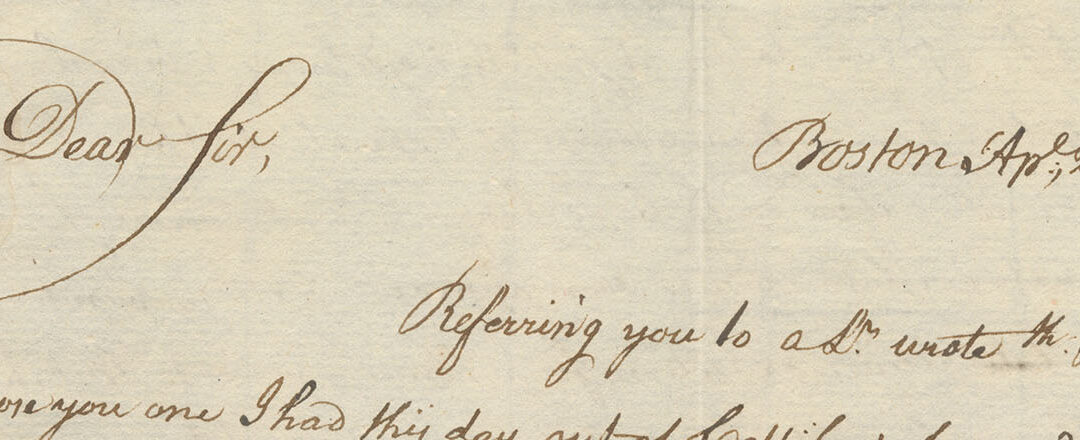 Dear Sir,
Boston Apl.,
Referring you to a Lr. wrote th.
you one I had this day out of